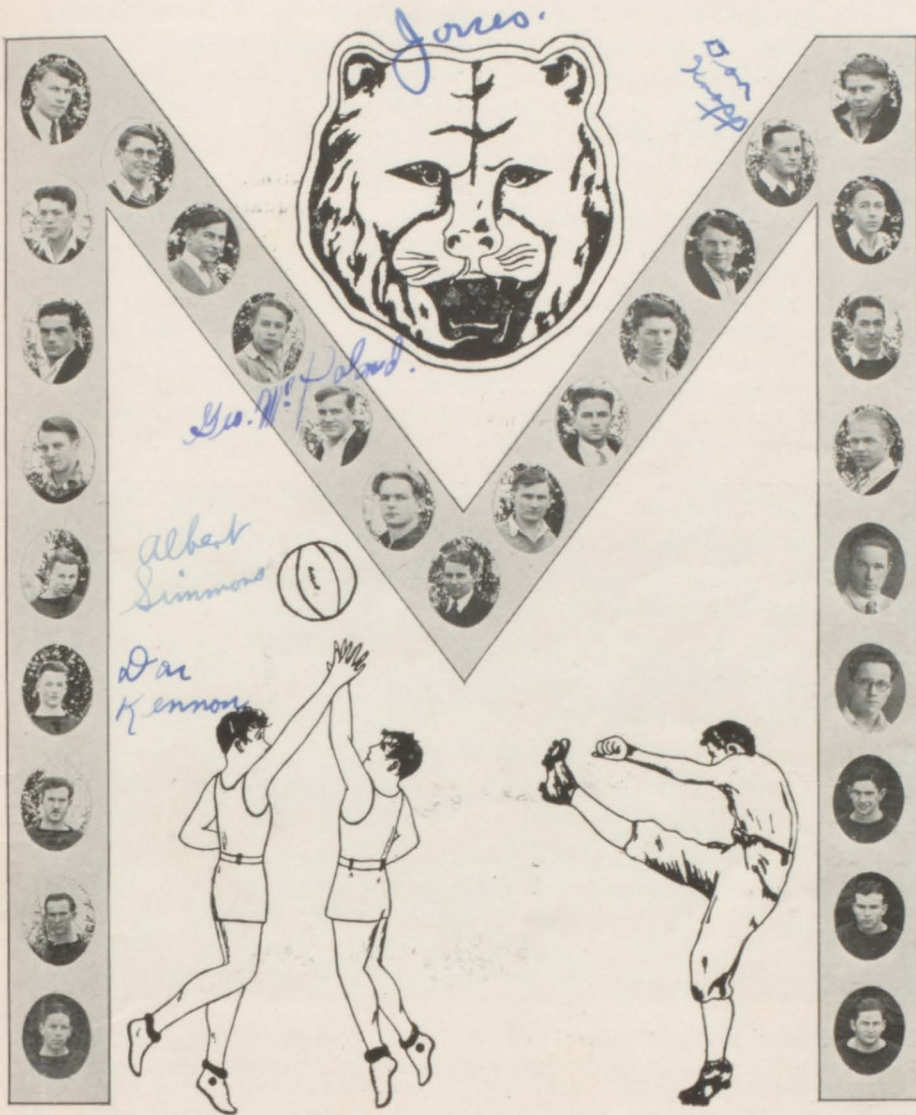 Jones.
Don
Knapp
Geo. Mc Poland.
Albert
Simmons
Don
Kennon